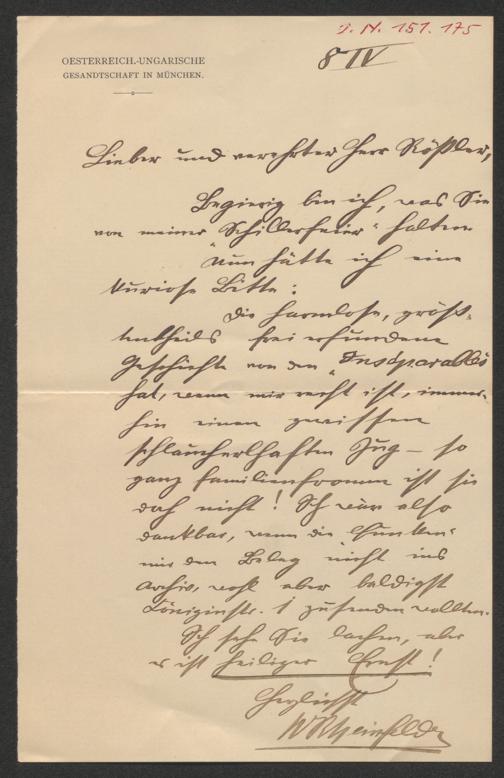 I. N. 151.175
8 IV
OESTERREICH.-UNGARISCHE
GESANDTSCHAFT IN MÜNCHEN.
Lieber und verehrter Herr Rößler,
Begierig bin ich, was Sie
von meiner „Schillerfeier“ halten.
Nun hätte ich eine
kuriose Bitte:
Die harmlose, größ-
tentheils frei erfundene
Geschichte von den „Inséparables
hat, wenn mir recht ist, immer-
hin einen gewissen
schlüpferlhaften Zug – so
ganz familienfromm ist sie
doch nicht! Ich wär also
dankbar, wenn die
mir den Beleg nicht ins
Archiv, wohl aber baldigst
Königinstr. 1 zusenden wollten.
Ich sehe Sie lachen, aber
es ist heiliger Ernst!
Herzlichst